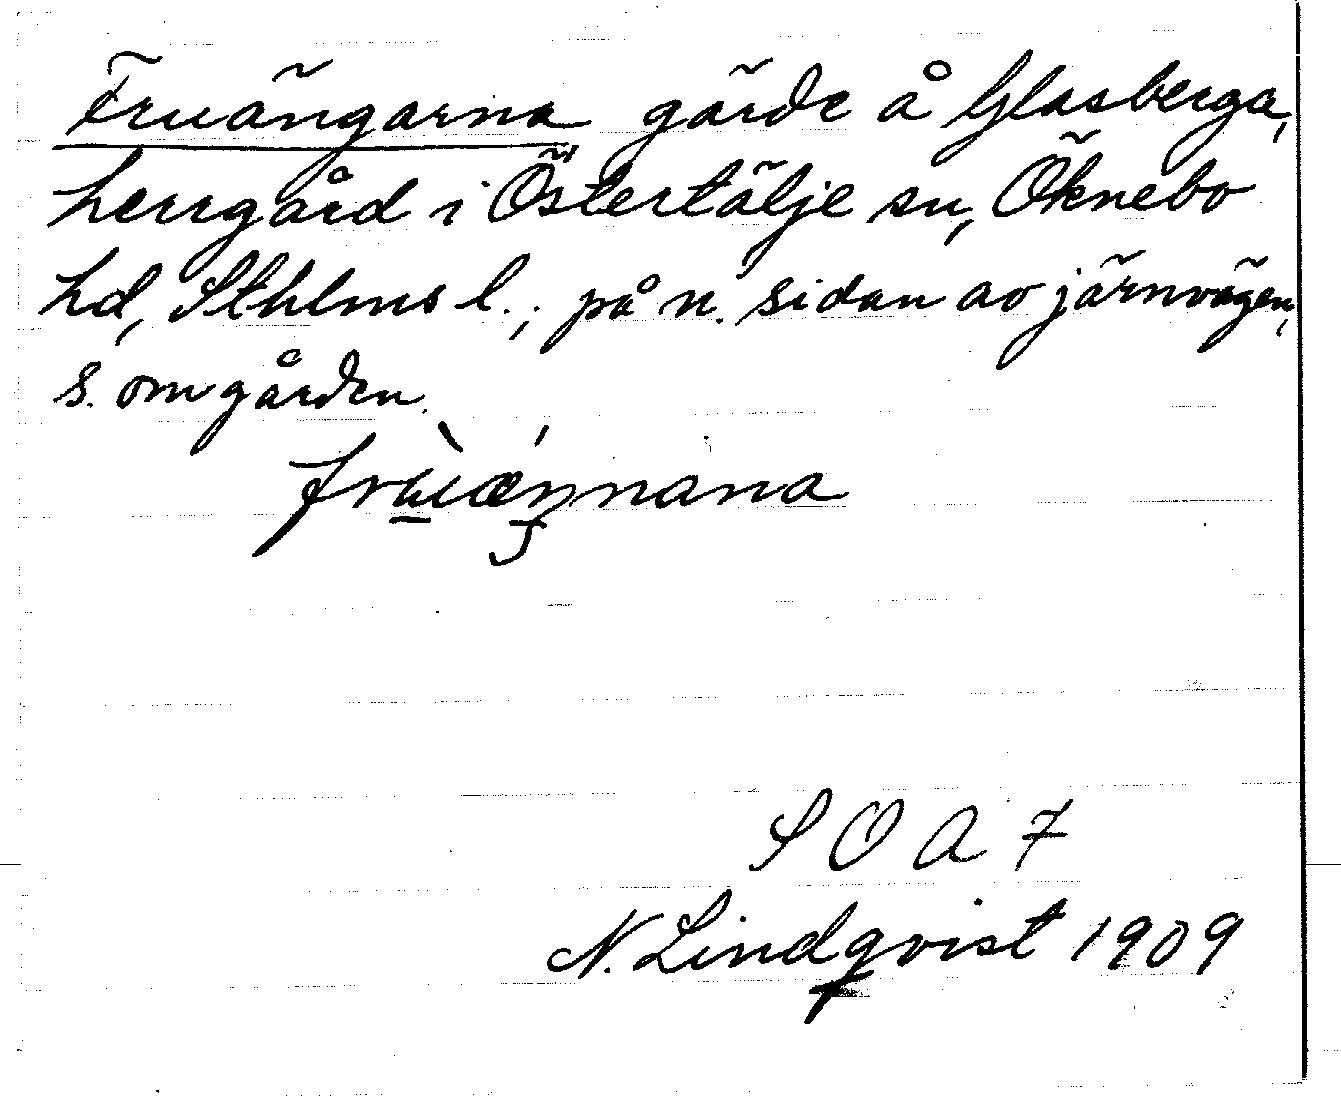 Fruängarna gärde å Glasberga,
herrgård i Östertälje sn, Öknebo
hd, Sthlms l.; på n. sidan av järnvägen,
s. om gården.
S O A 7
N. Lindqvist 1909